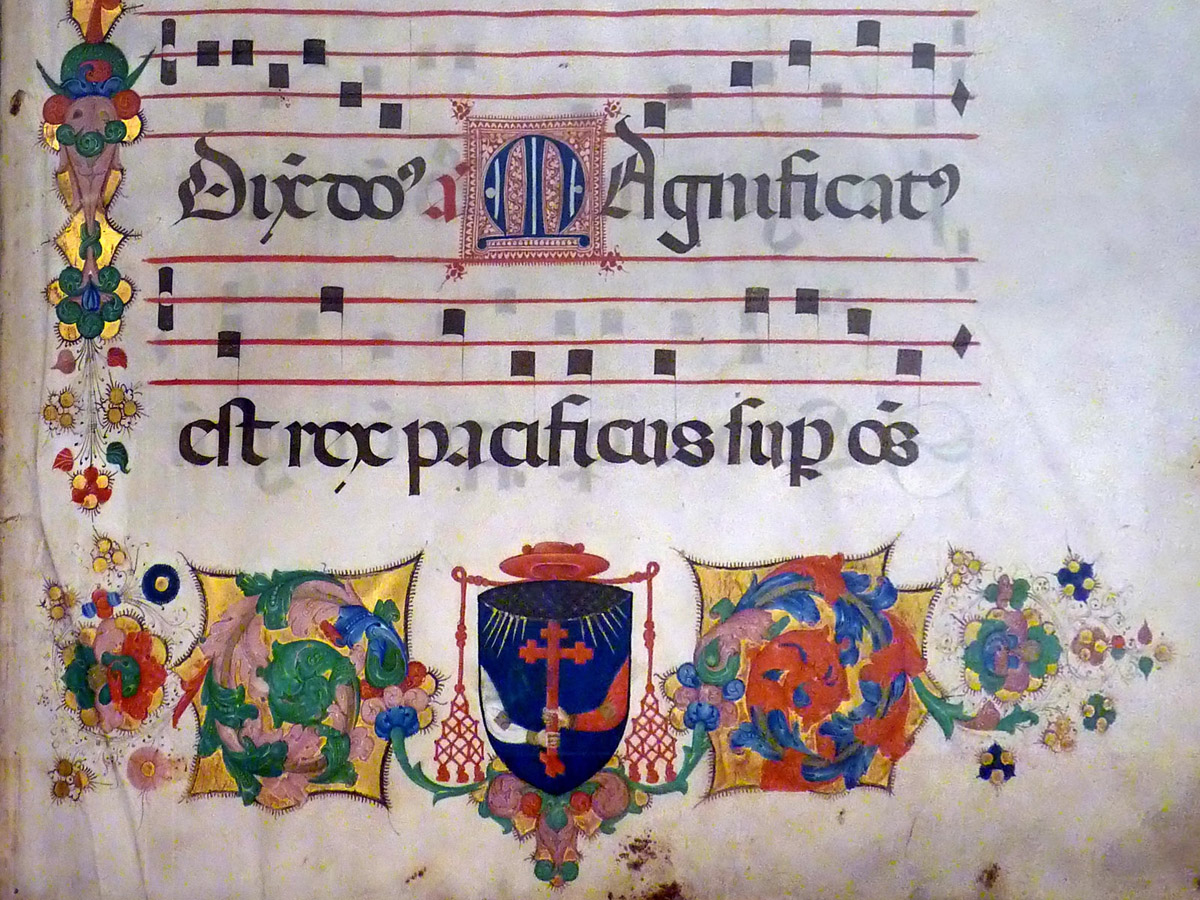 Dixit dñs añ MAgnificatꝰ
est rex pacificus suꝑ oẽs